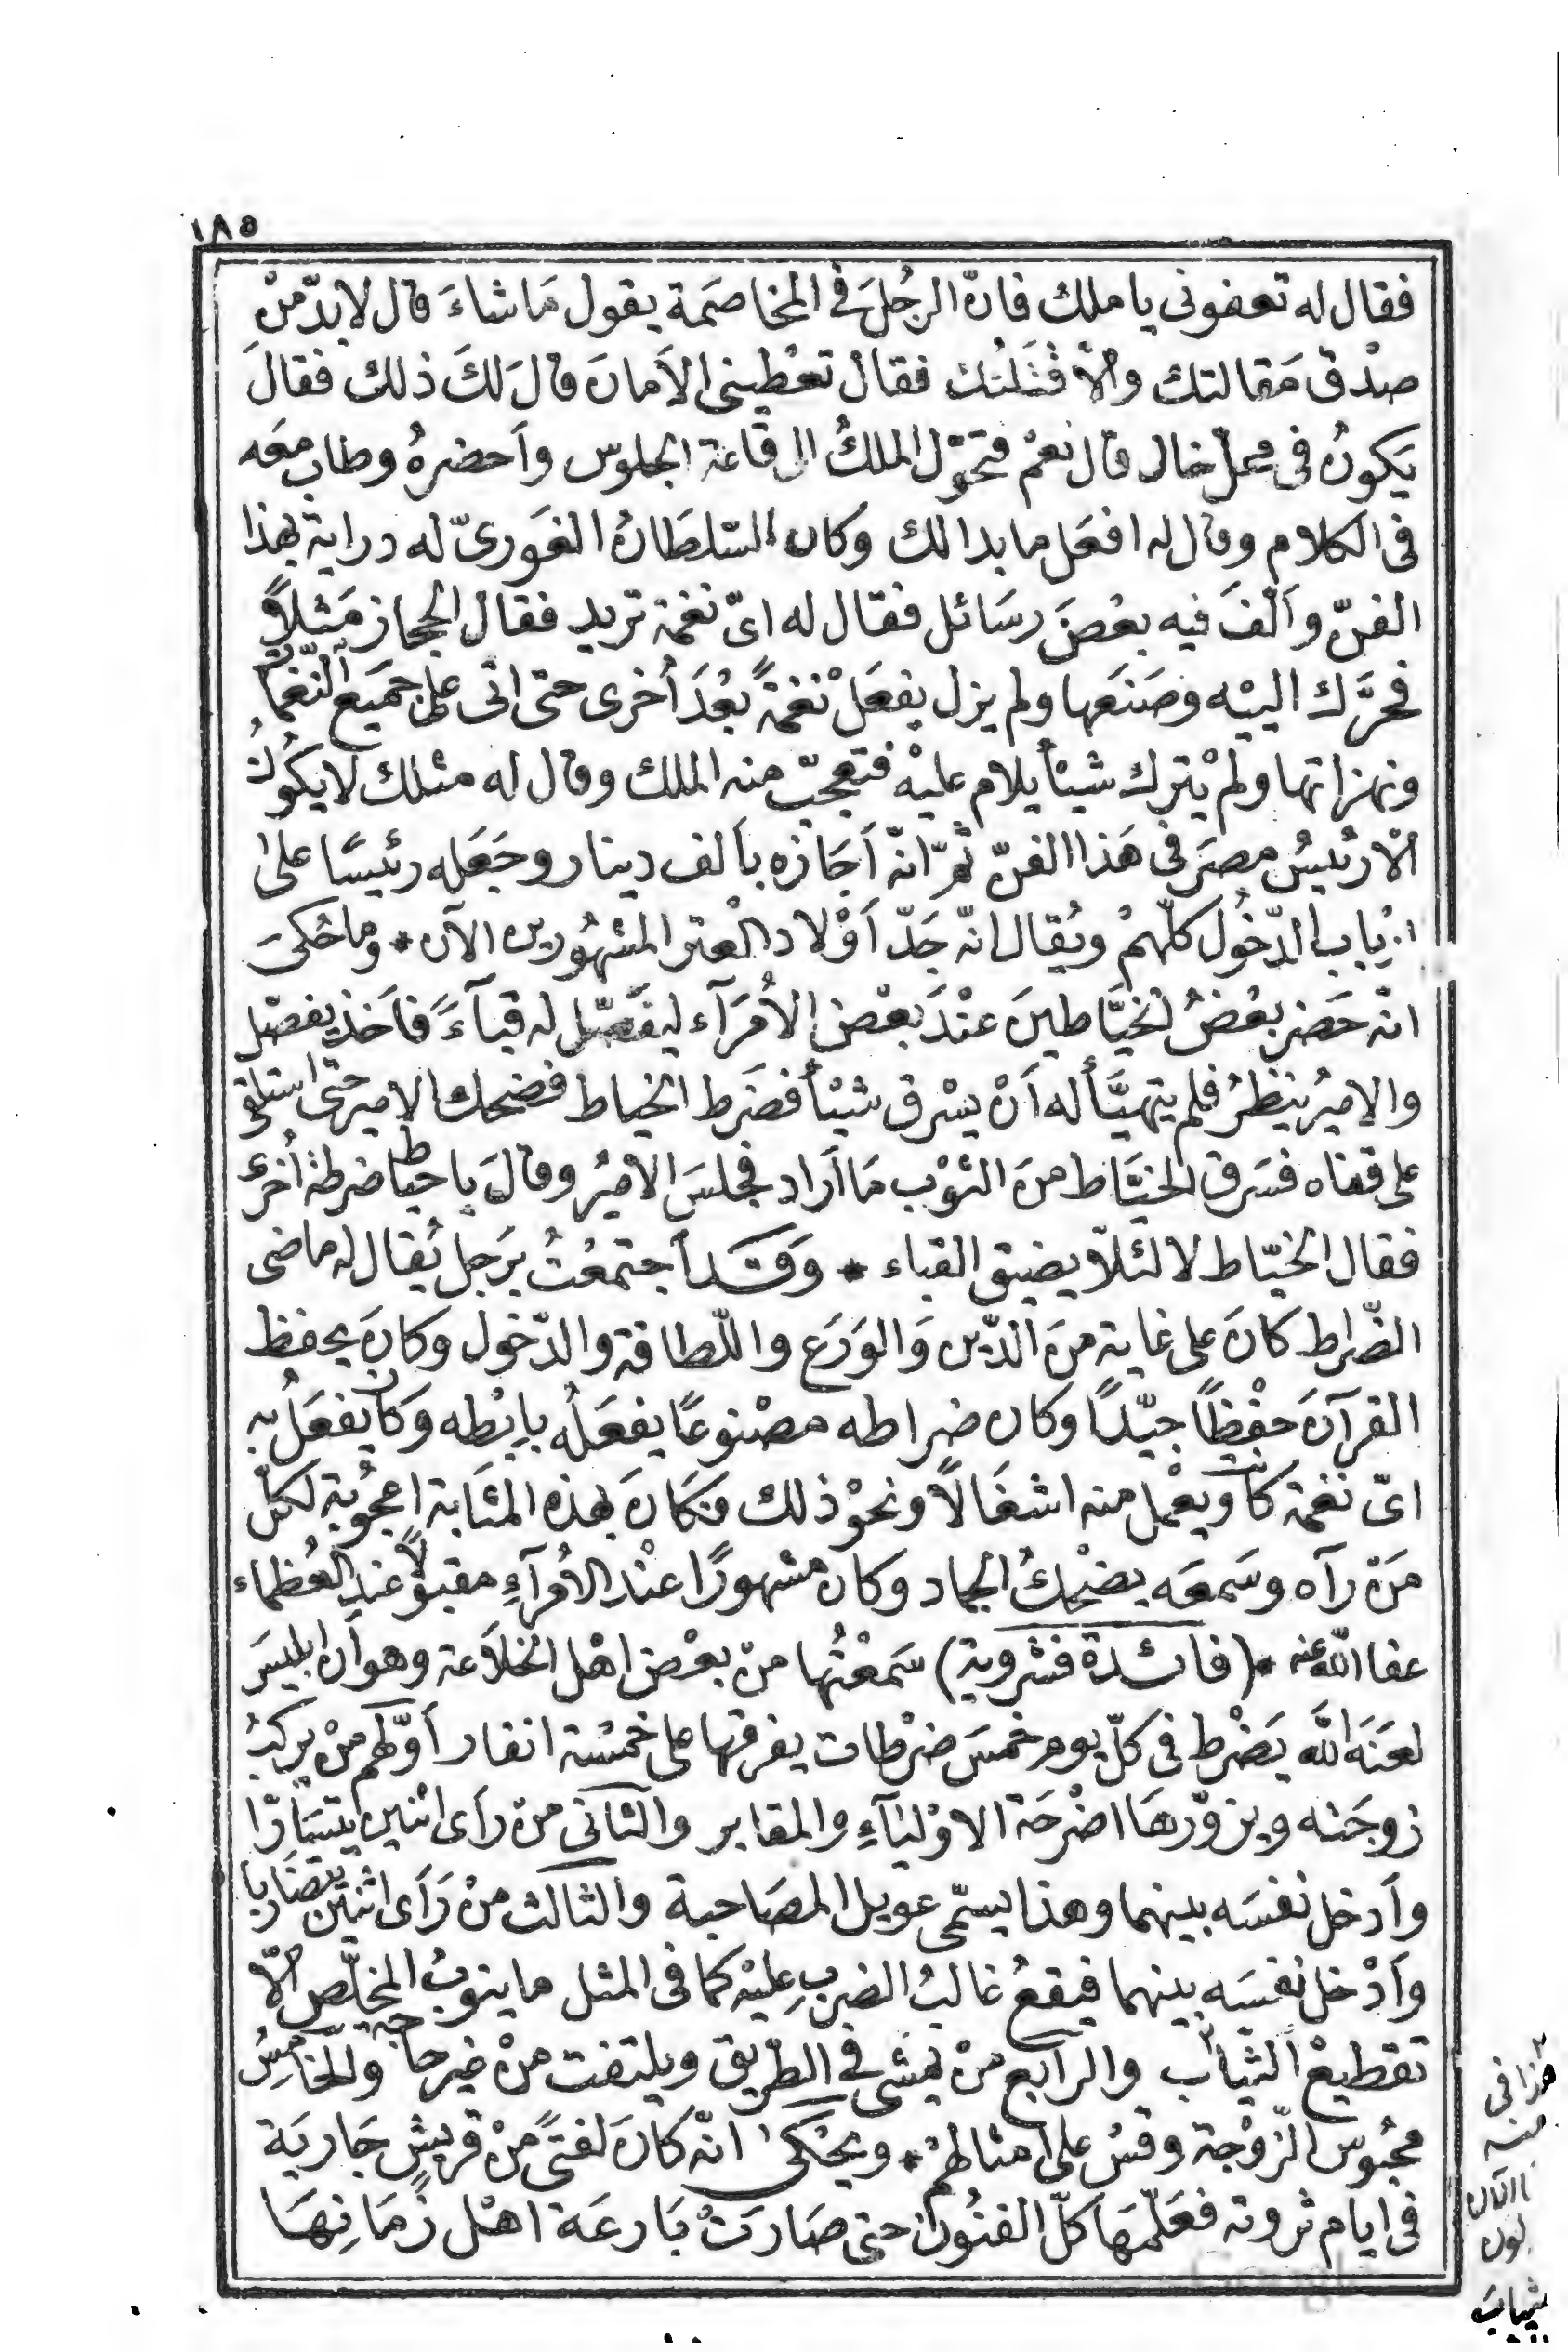 ١٨٥
فقال له تعفونى يا ملك فانّ الرجُلَ فى المخاصَمة يقول مَا شاءَ قال لا بدّ مْن
صدْق مَقالتك والّا قَتَلْتك فقال تعْطينى الاَمانَ قالَ لكَ ذلك فقالَ
يَكونُ فى محلّ خال قال نعَمْ فتحوّل الملكُ الى قاعة الجلوس وأحضرهُ وطاب معَه
فى الكلام وقال له افعَل ما بدا لك وكان السّلطَانُ الغَورىّ له دراية بهذا
الفنّ واَلّفَ فيه بعْضَ رسَائل فقال له اىّ نغمة تريد فقال الحجاز مَثلاً
فحرَّك اليْه وصَنَعها ولم يزل يفعَلْ نغمةً بعْدَ أخرى حتى اتى على جَميع النّغمات
ونهزاتها ولم يْترك شيأ يلام عليْه فتعجّب منه الملك وقال له مثلك لا يكُونُ
الّا رئيسُ مصرَ فى هَذا الفنّ ثمّ انّه أجَازه بألف دينار وجَعَله رئيسًا على
ارْباب الدّخُول كلّهمْ ويُقال انّه جَدّ أوْلاد العتر المشهُورين الآن * وما حُكىَ
انّه حَضر بعْضُ الخيَّاطينَ عنْدَ بَعْض الأمَرَآء ليفَصّل له قبآءً فأخذ يفصّل
والاميرُ ينظرُ فلم يتهيَّأ له أنْ يسْرق شيْأ فضَرط الخياط فضحك الامير حتى استلقى
على قفاه فسَرق الخيَّاط منَ الثوْب مَا أرَاد فجلسَ الاميُر وقالَ يا خياط ضرطة أخرى
فقال الخيّاط لا لئلّا يضيق القباء * وَقَد اجتمعْتُ برَجل يُقال له ماضى
الضّراط كانَ على غاية منَ الدّين وَالوَرَع واللّطافة والدّخول وكانَ يحفظ
القرآنَ حفْظاً جيّدًا وكان ضراطه مصْنوعًا يفعَلُه بابْطه وكان يفعَلُ به
اىّ نغمة كانت ويعْمل منه اشغَالاً ونحوْ ذلك فكَانَ بهذه المثَابة اعجوُبة لكلّ
مَنْ رآه وسَمعَه يضْحكُ الجماد وكان مشهورًا عنْد الأمرآءِ مقبولاً عند العُظماء
عفا اللّه عنه * (فائدة فشروية) سَمعْتُها منْ بعْض اهْل الخلاَعة وهو أن ابليسَ
لعَنَه اللَّه يَضْرط فى كلّ يوم خمسَ ضرْطات يفرقها على خمسْة انفار أوّلهم منْ يركبُ
زوجَته ويزوّرهَا اضْرحَة الاوْليَآءِ والمقابر والثانى منْ رَأى اثنين يتسَارّا
وأدخل نفسَه بينهما وهذا يسمّى عويل المصَاحبة والثالث منْ رَأى اثنين يتضَاربا
وأدْخل نفسَه بينهما فيقعُ غالبُ الضرب عليْه كما فى المثل ما ينوبُ المخلّص الّا
تقطيعْ الثياب والرابع منْ يمشى فى الطّريق ويلتفت منْ غير حاجة والخامسُ
محبُوس الزّوْجة وقسْ على امثالهمْ * ويحْكى انّه كانَ لفتىً منْ قريش جَاريَة
فى ايام ثروته فعَلّمهَا كلّ الفنُون حتى صَارَتْ بَارعَة اهْل زَمَانِهَا
هذا فى
ثياب